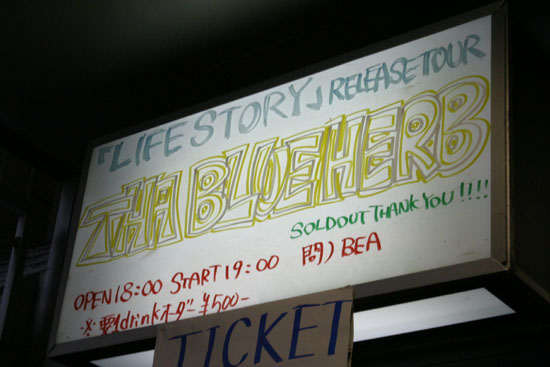 『LIFE STORY』RELEASE TOUR
THA BLUE HERB
SOLDOUT THANK YOU!!!!
OPEN 18:00 START 19:00 問) BEA
※要1drinkオーダー ¥500-
TICKET